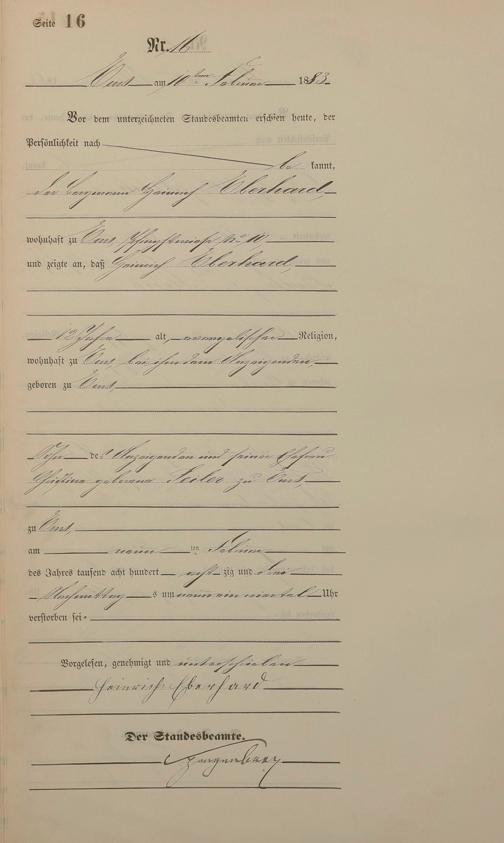 Seite 16
Nr. 16
Ems am 10ten Februar 1883
Vor dem unterzeichneten Standesbeamten erschien heute, der
Persönlichkeit nach
be kannt,
der Bergmann Heinrich Eberhard,
wohnhaft zu Ems, Nr 10
und zeigte an, daß Heinrich Eberhard,
12 Jahre alt, evangelischer Religion,
wohnhaft zu Ems, bei ihm dem Anzeigenden,
geboren zu Ems,
Sohn des Anzeigenden und seiner Ehefrau
Christine geborene zu Ems,
zu Ems,
am neun ten Februar
des Jahres tausend acht hundert acht zig und drei
Nachmittag s um neun ein viertel Uhr
verstorben sei.
Vorgelesen, genehmigt und unterschrieben
Heinrich Eberhard
Der Standesbeamte.